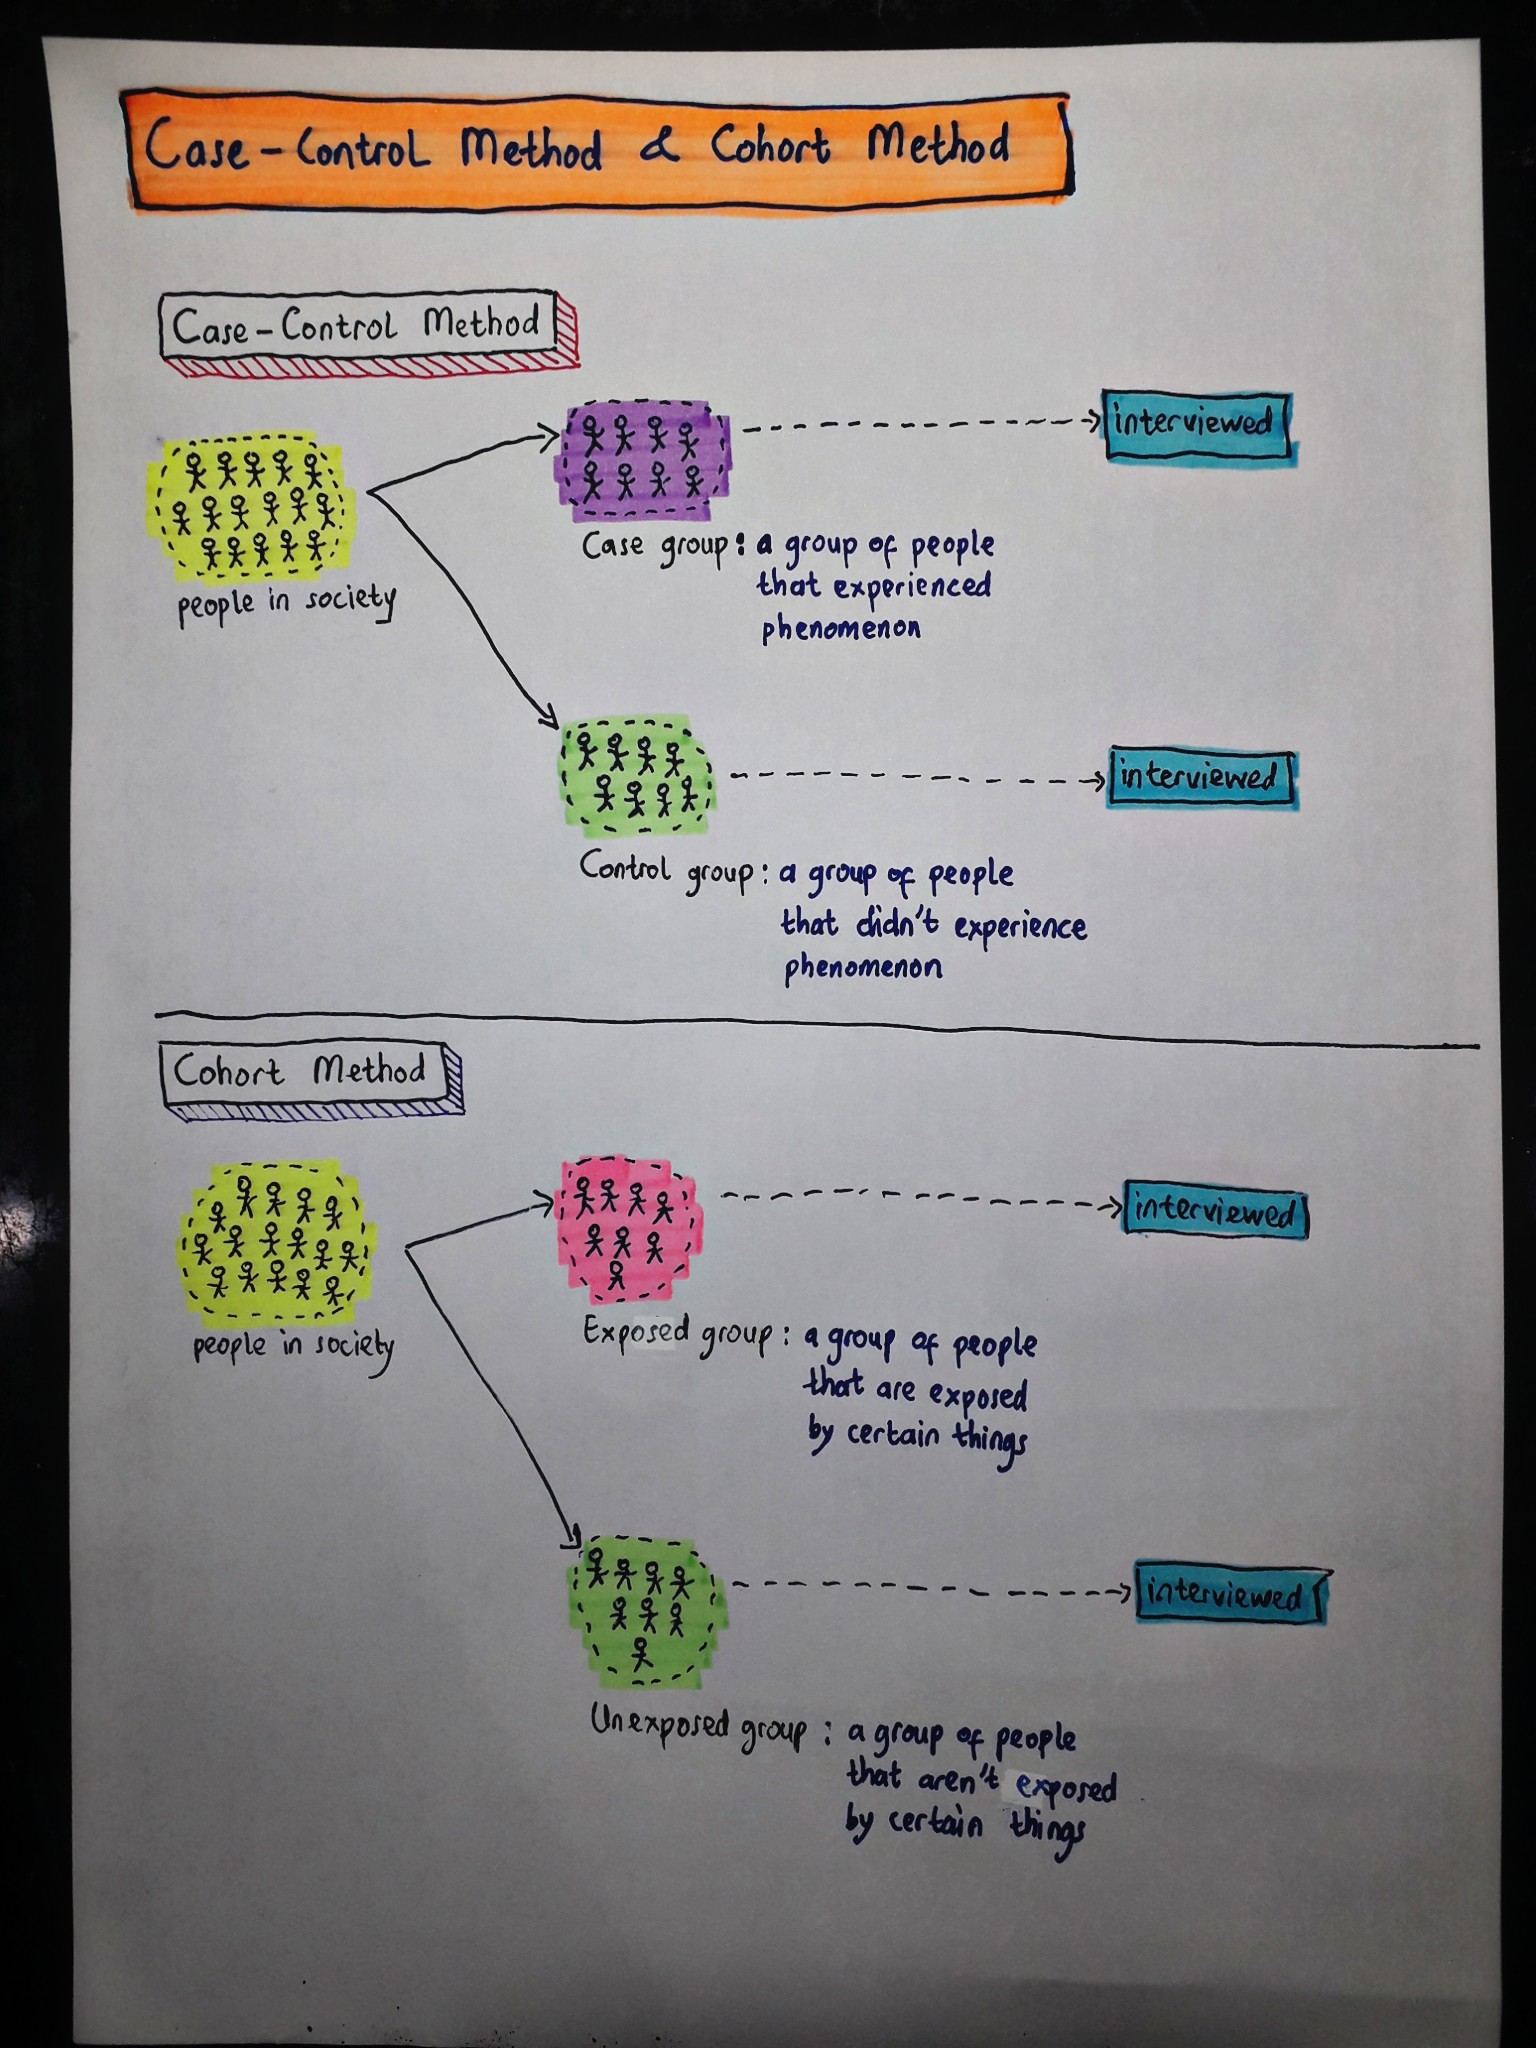 Case-Control Method & Cohort Method
Case-Control Method
interviewed
people in society
Case group: a group of people
that experienced
phenomenon
interviewed
Control group: a group of people
that didn't experience
phenomenon
Cohort Method
interviewed
people in society
Exposed group: a group of people
that are exposed
by certain things
interviewed
Unexposed group: a group of people
that aren't exposed
by certain things